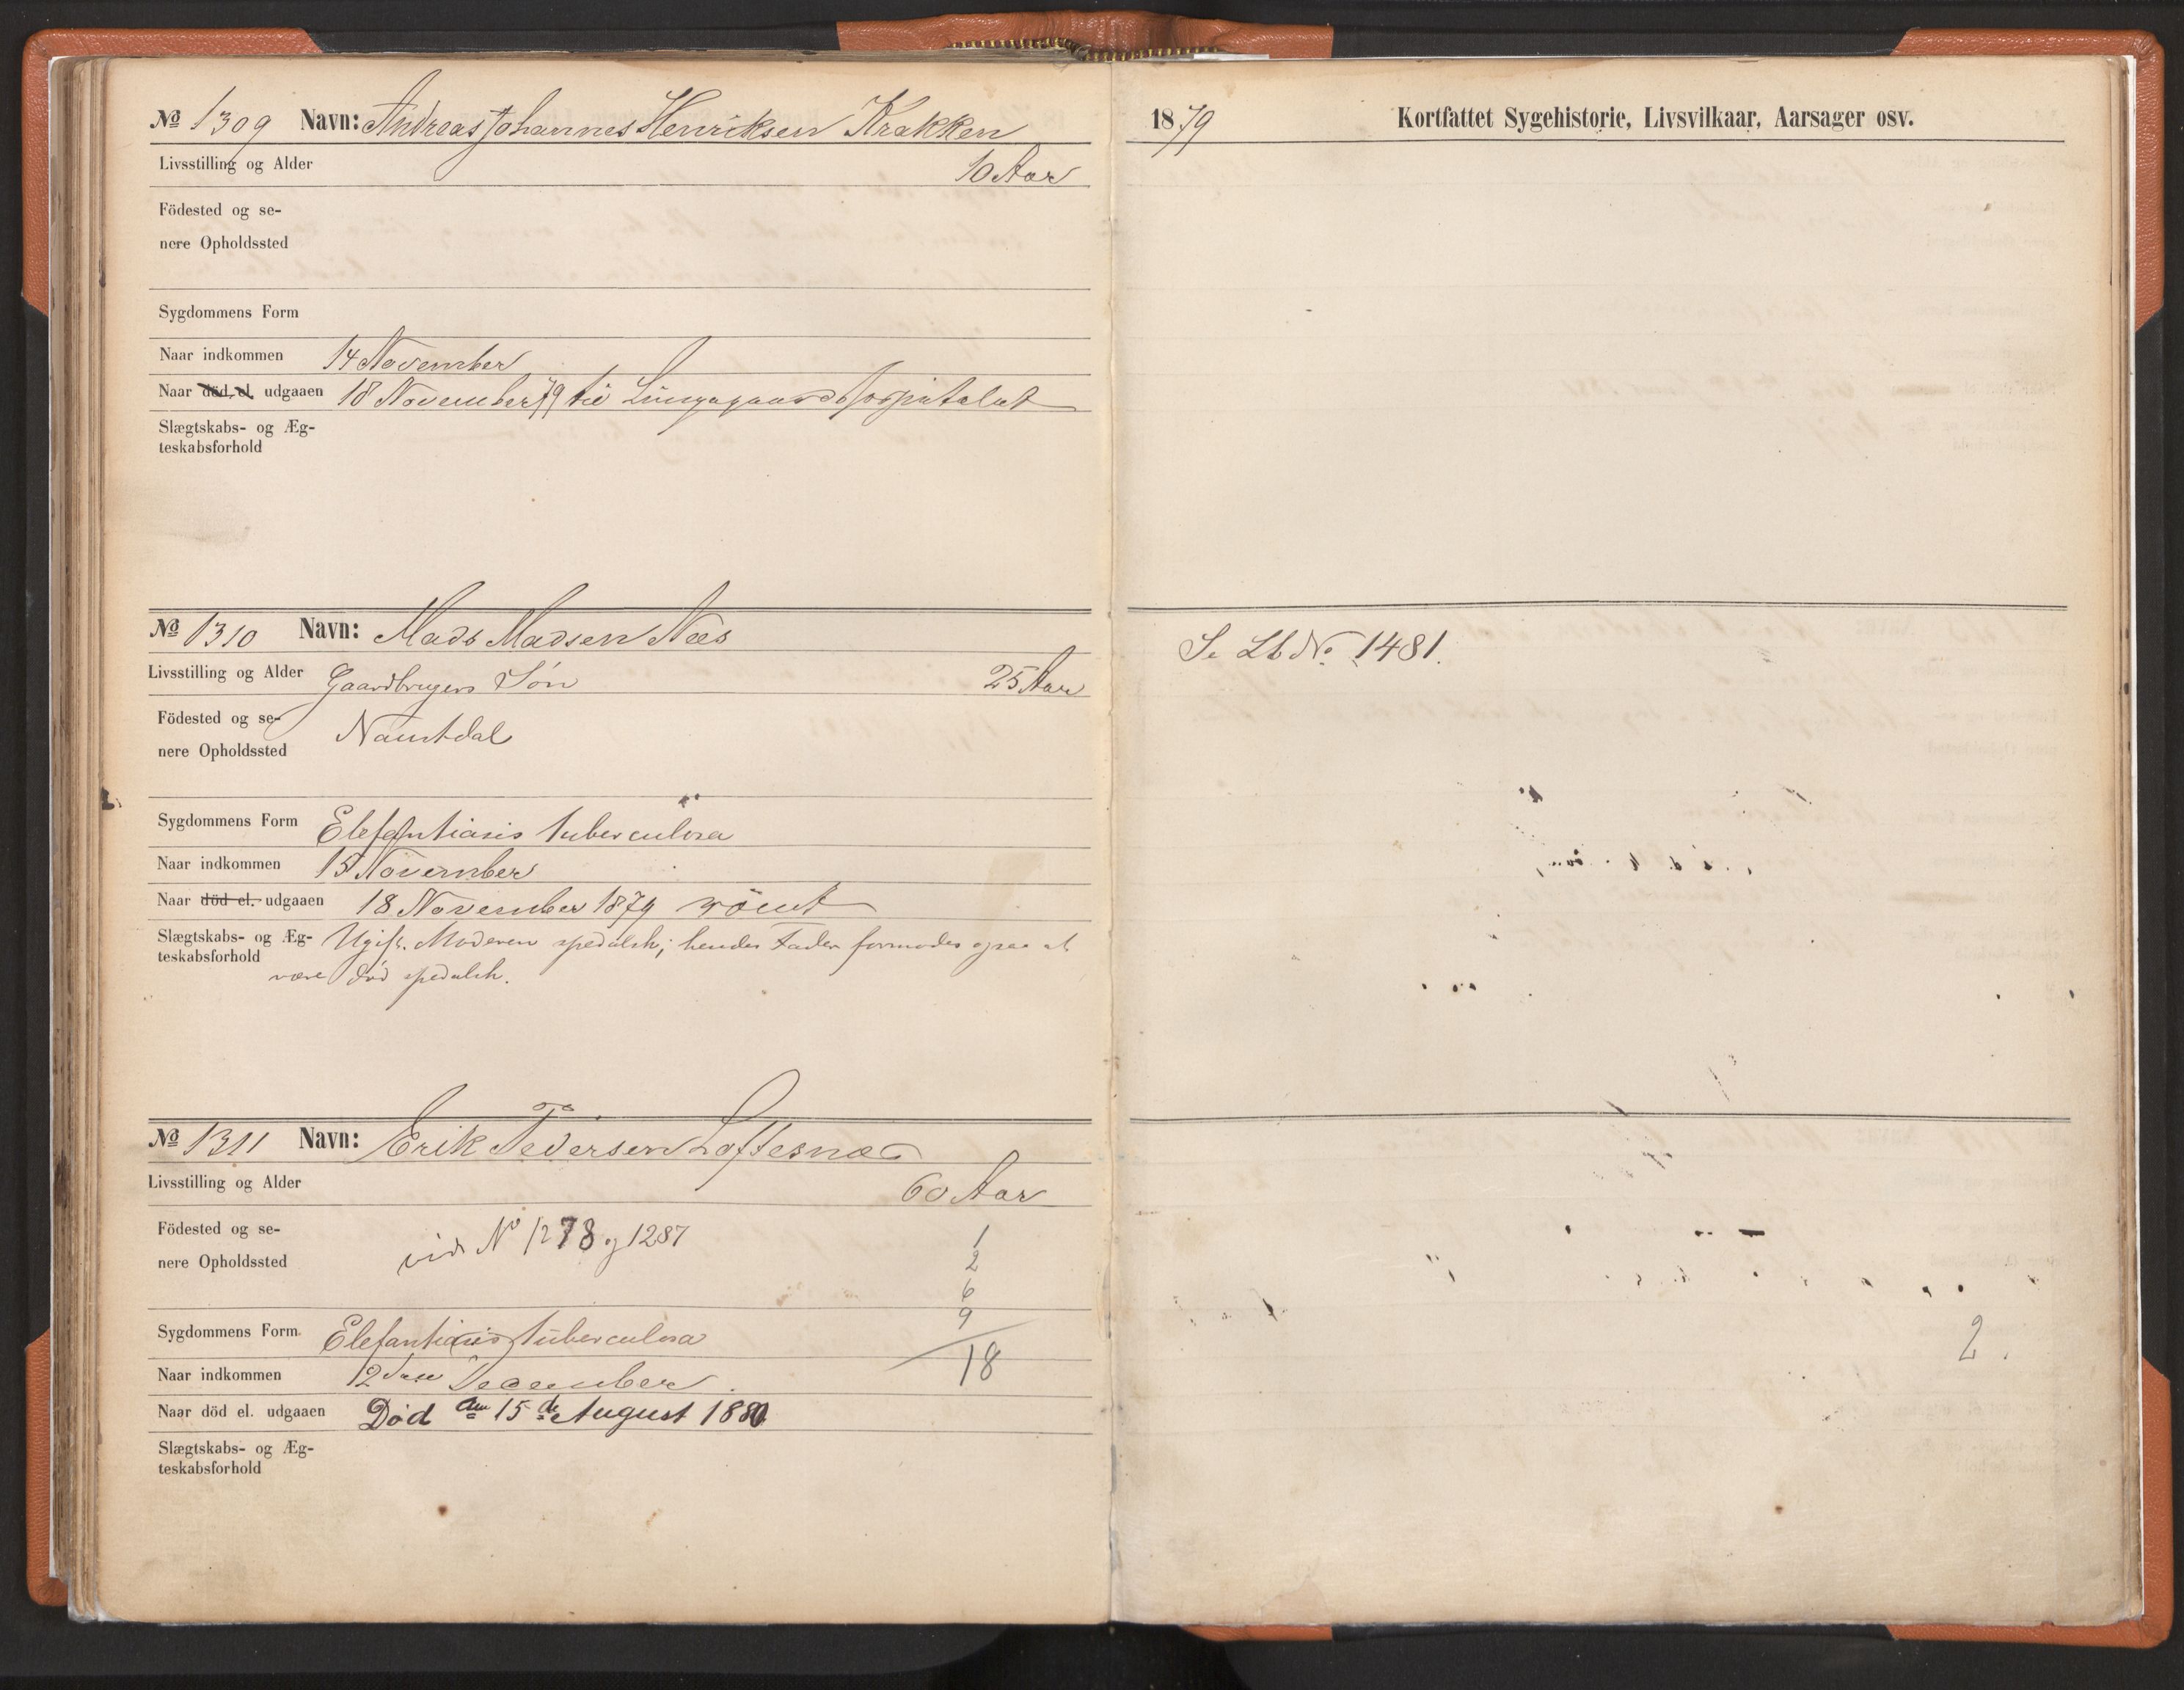 № 1309 Navn: Andreas Johannes Henriksen Krakken
Livsstilling og Alder 10 Aar
Födested og se-
nere Opholdssted
Sygdommens Form
Naar indkommen 14 November
Naar död el. udgaaen 18 November 79 til Lungegaardshospitalet
Slægtskabs- og Æg-
teskabsforhold
№ 1310 Navn: Mads Madsen Næs
Livsstilling og Alder Gaardbrugers Sön 25 Aar
Födested og se-
nere Opholdssted Naustdal
Sygdommens Form Elefantiasis tuberculosa
Naar indkommen 15 November
Naar död el. udgaaen 18 November 1879 römt
Slægtskabs- og Æg-
teskabsforhold Ugift. Moderen spedalsk; hendes Fader formodes ogsaa at
være död spedalsk.
№ 1311 Navn: Erik Pedersen Loftesnæs
Livsstilling og Alder 60 Aar
Födested og se-
nere Opholdssted vide No 1278 og 1287
1
2
6
9
18
Sygdommens Form Elefantiasis tuberculosa
Naar indkommen 12 December
Naar död el. udgaaen Död den 15de August 1880
Slægtskabs- og Æg-
teskabsforhold
1879 Kortfattet Sygehistorie, Livsvilkaar, Aarsager osv.
Se Lb No. 1481.
2.